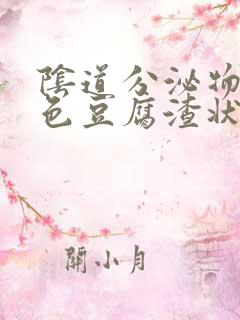 陰道分泌物
色豆腐渣状
關小月